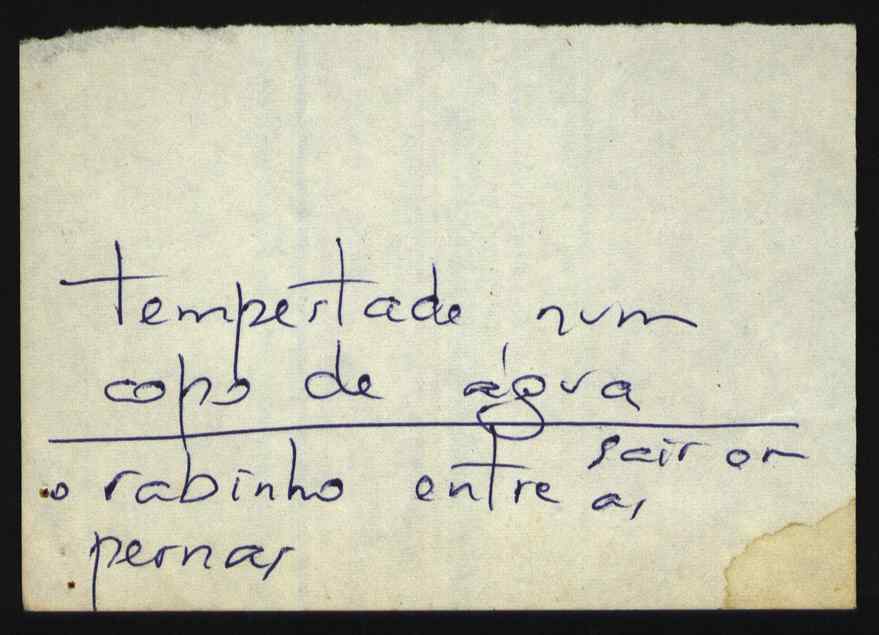 tempestade num
copo de água
sair com
o rabinho entre as
pernas